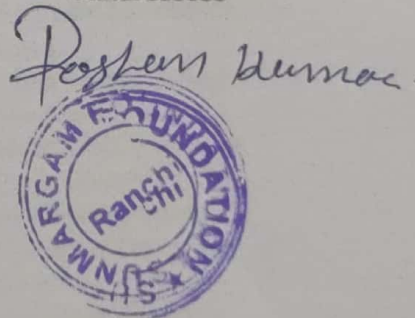 Roshan Kumar
SUNMARGAM FOUNDATION
Ranchi